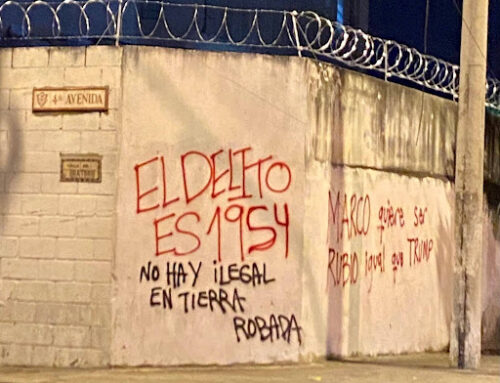 4ª AVENIDA
EL DELITO
ES 1954
NO HAY iLEGAL
EN TiERRA
ROBADA
MARCO quiere ser
RUBIO igual que TRUMP